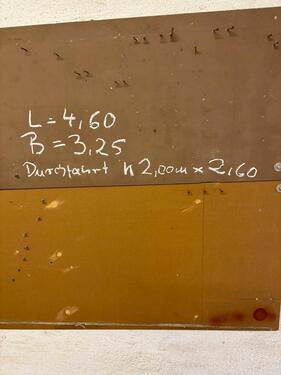 L = 4,60
B = 3,25
Durchfahrt h 2,00m x 2,60